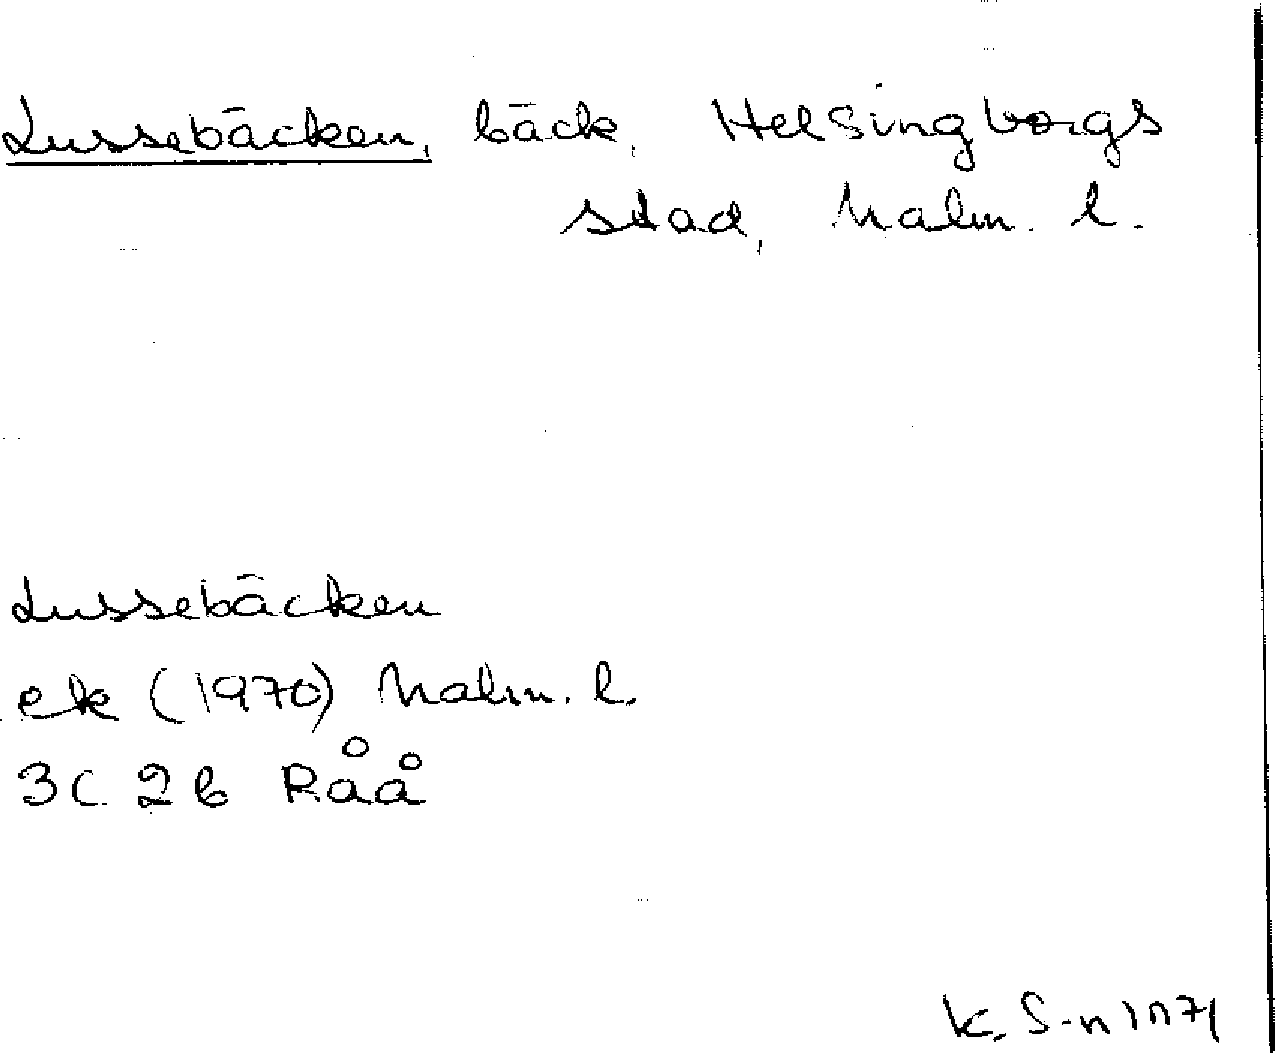 Lussebäcken, bäck, Helsingborgs
stad, Malm. l.
Lussebäcken
ek (1970) Malm. l.
3C 2b Råå
K. S-n